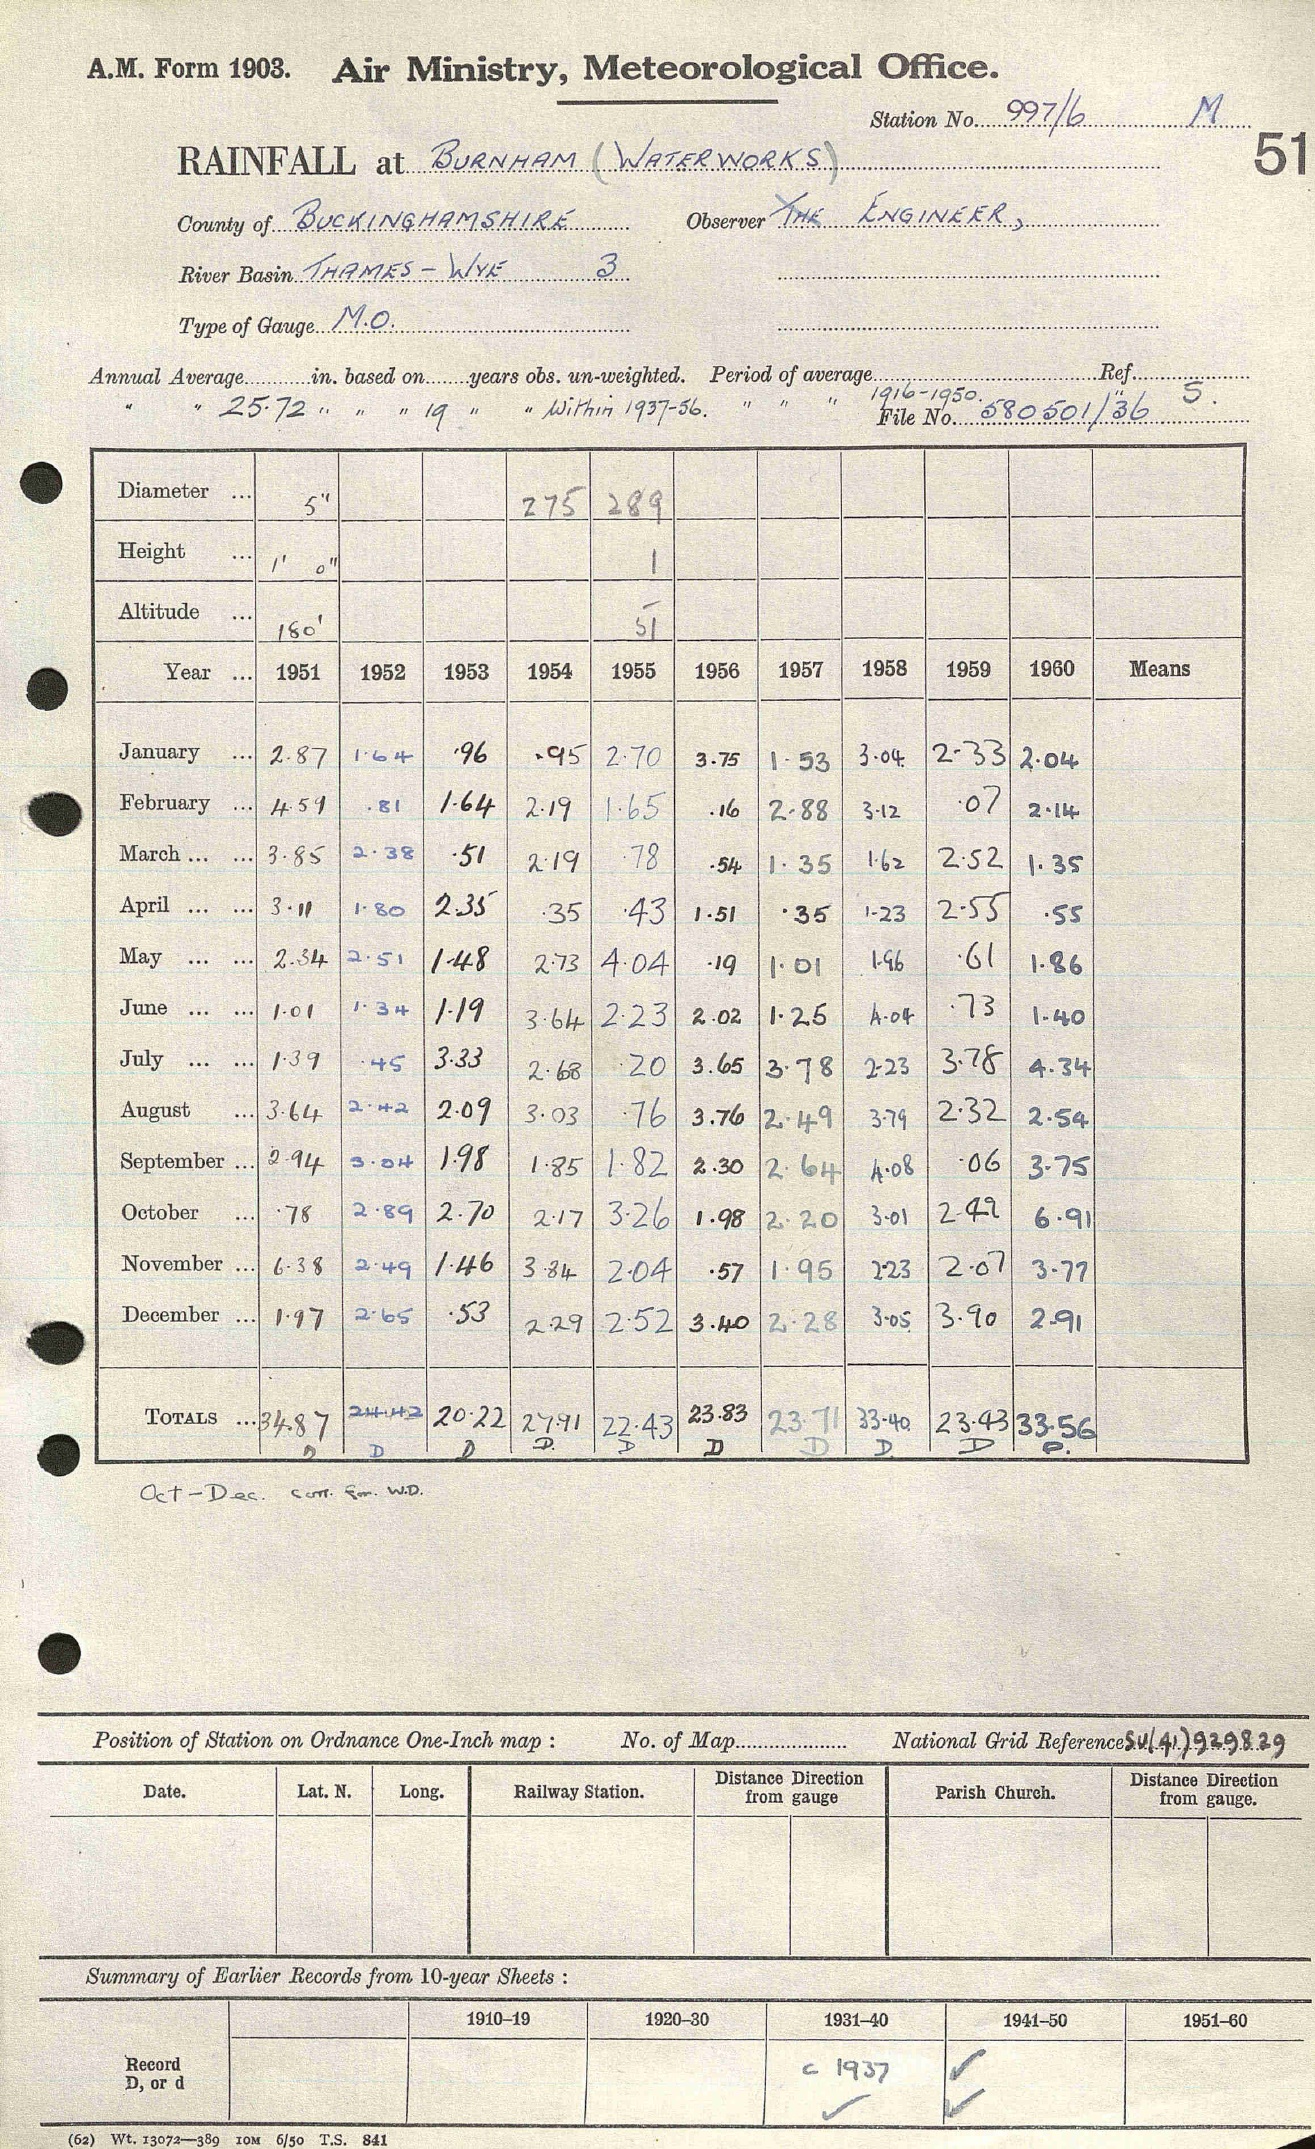 A.M. Form 1903. Air Ministry, Meteorological Office.
Station No. 997/6 M
51
RAINFALL at BURNHAM (WATERWORKS)
County of BUCKINGHAMSHIRE Observer THE ENGINEER,
River Basin THAMES - WYE 3
Type of Gauge M.O.
Annual Average in. based on years obs. un-weighted. Period of average Ref.
" " 25.72 " " " 19 " " Within 1937-56. " " " 1916-1950. " 5.
File No. 580501/36
Diameter ... 5" 275 289
Height ... 1' 0" 1
Altitude ... 180' 51
Year ... 1951 1952 1953 1954 1955 1956 1957 1958 1959 1960 Means
January ... 2.87 1.64 .96 .95 2.70 3.75 1.53 3.04 2.33 2.04
February ... 4.59 .81 1.64 2.19 1.65 .16 2.88 3.12 .07 2.14
March ... ... 3.85 2.38 .51 2.19 .78 .54 1.35 1.62 2.52 1.35
April ... ... 3.11 1.80 2.35 .35 .43 1.51 .35 1.23 2.55 .55
May ... ... 2.34 2.51 1.48 2.73 4.04 .19 1.01 1.96 .61 1.86
June ... ... 1.01 1.34 1.19 3.64 2.23 2.02 1.25 4.04 .73 1.40
July ... ... 1.39 .45 3.33 2.68 .20 3.65 3.78 2.23 3.78 4.34
August ... 3.64 2.42 2.09 3.03 .76 3.76 2.49 3.79 2.32 2.54
September ... 2.94 3.04 1.98 1.85 1.82 2.30 2.64 4.08 .06 3.75
October ... .78 2.89 2.70 2.17 3.26 1.98 2.20 3.01 2.49 6.91
November ... 6.38 2.49 1.46 3.84 2.04 .57 1.95 2.23 2.07 3.77
December ... 1.97 2.65 .53 2.29 2.52 3.40 2.28 3.05 3.90 2.91
TOTALS ... 34.87 24.42 20.22 27.91 22.43 23.83 23.71 33.40 23.43 33.56
D D D D D D D D D
Oct - Dec. corr. for W.D.
Position of Station on Ordnance One-Inch map : No. of Map National Grid Reference SU(41)929829
Date. Lat. N. Long. Railway Station. Distance Direction from gauge Parish Church. Distance Direction from gauge.
Summary of Earlier Records from 10-year Sheets :
1910–19 1920–30 1931–40 1941–50 1951–60
Record D, or d c 1937 ✓
✓ ✓
(62) Wt. 13072—389 10M 6/50 T.S. 841